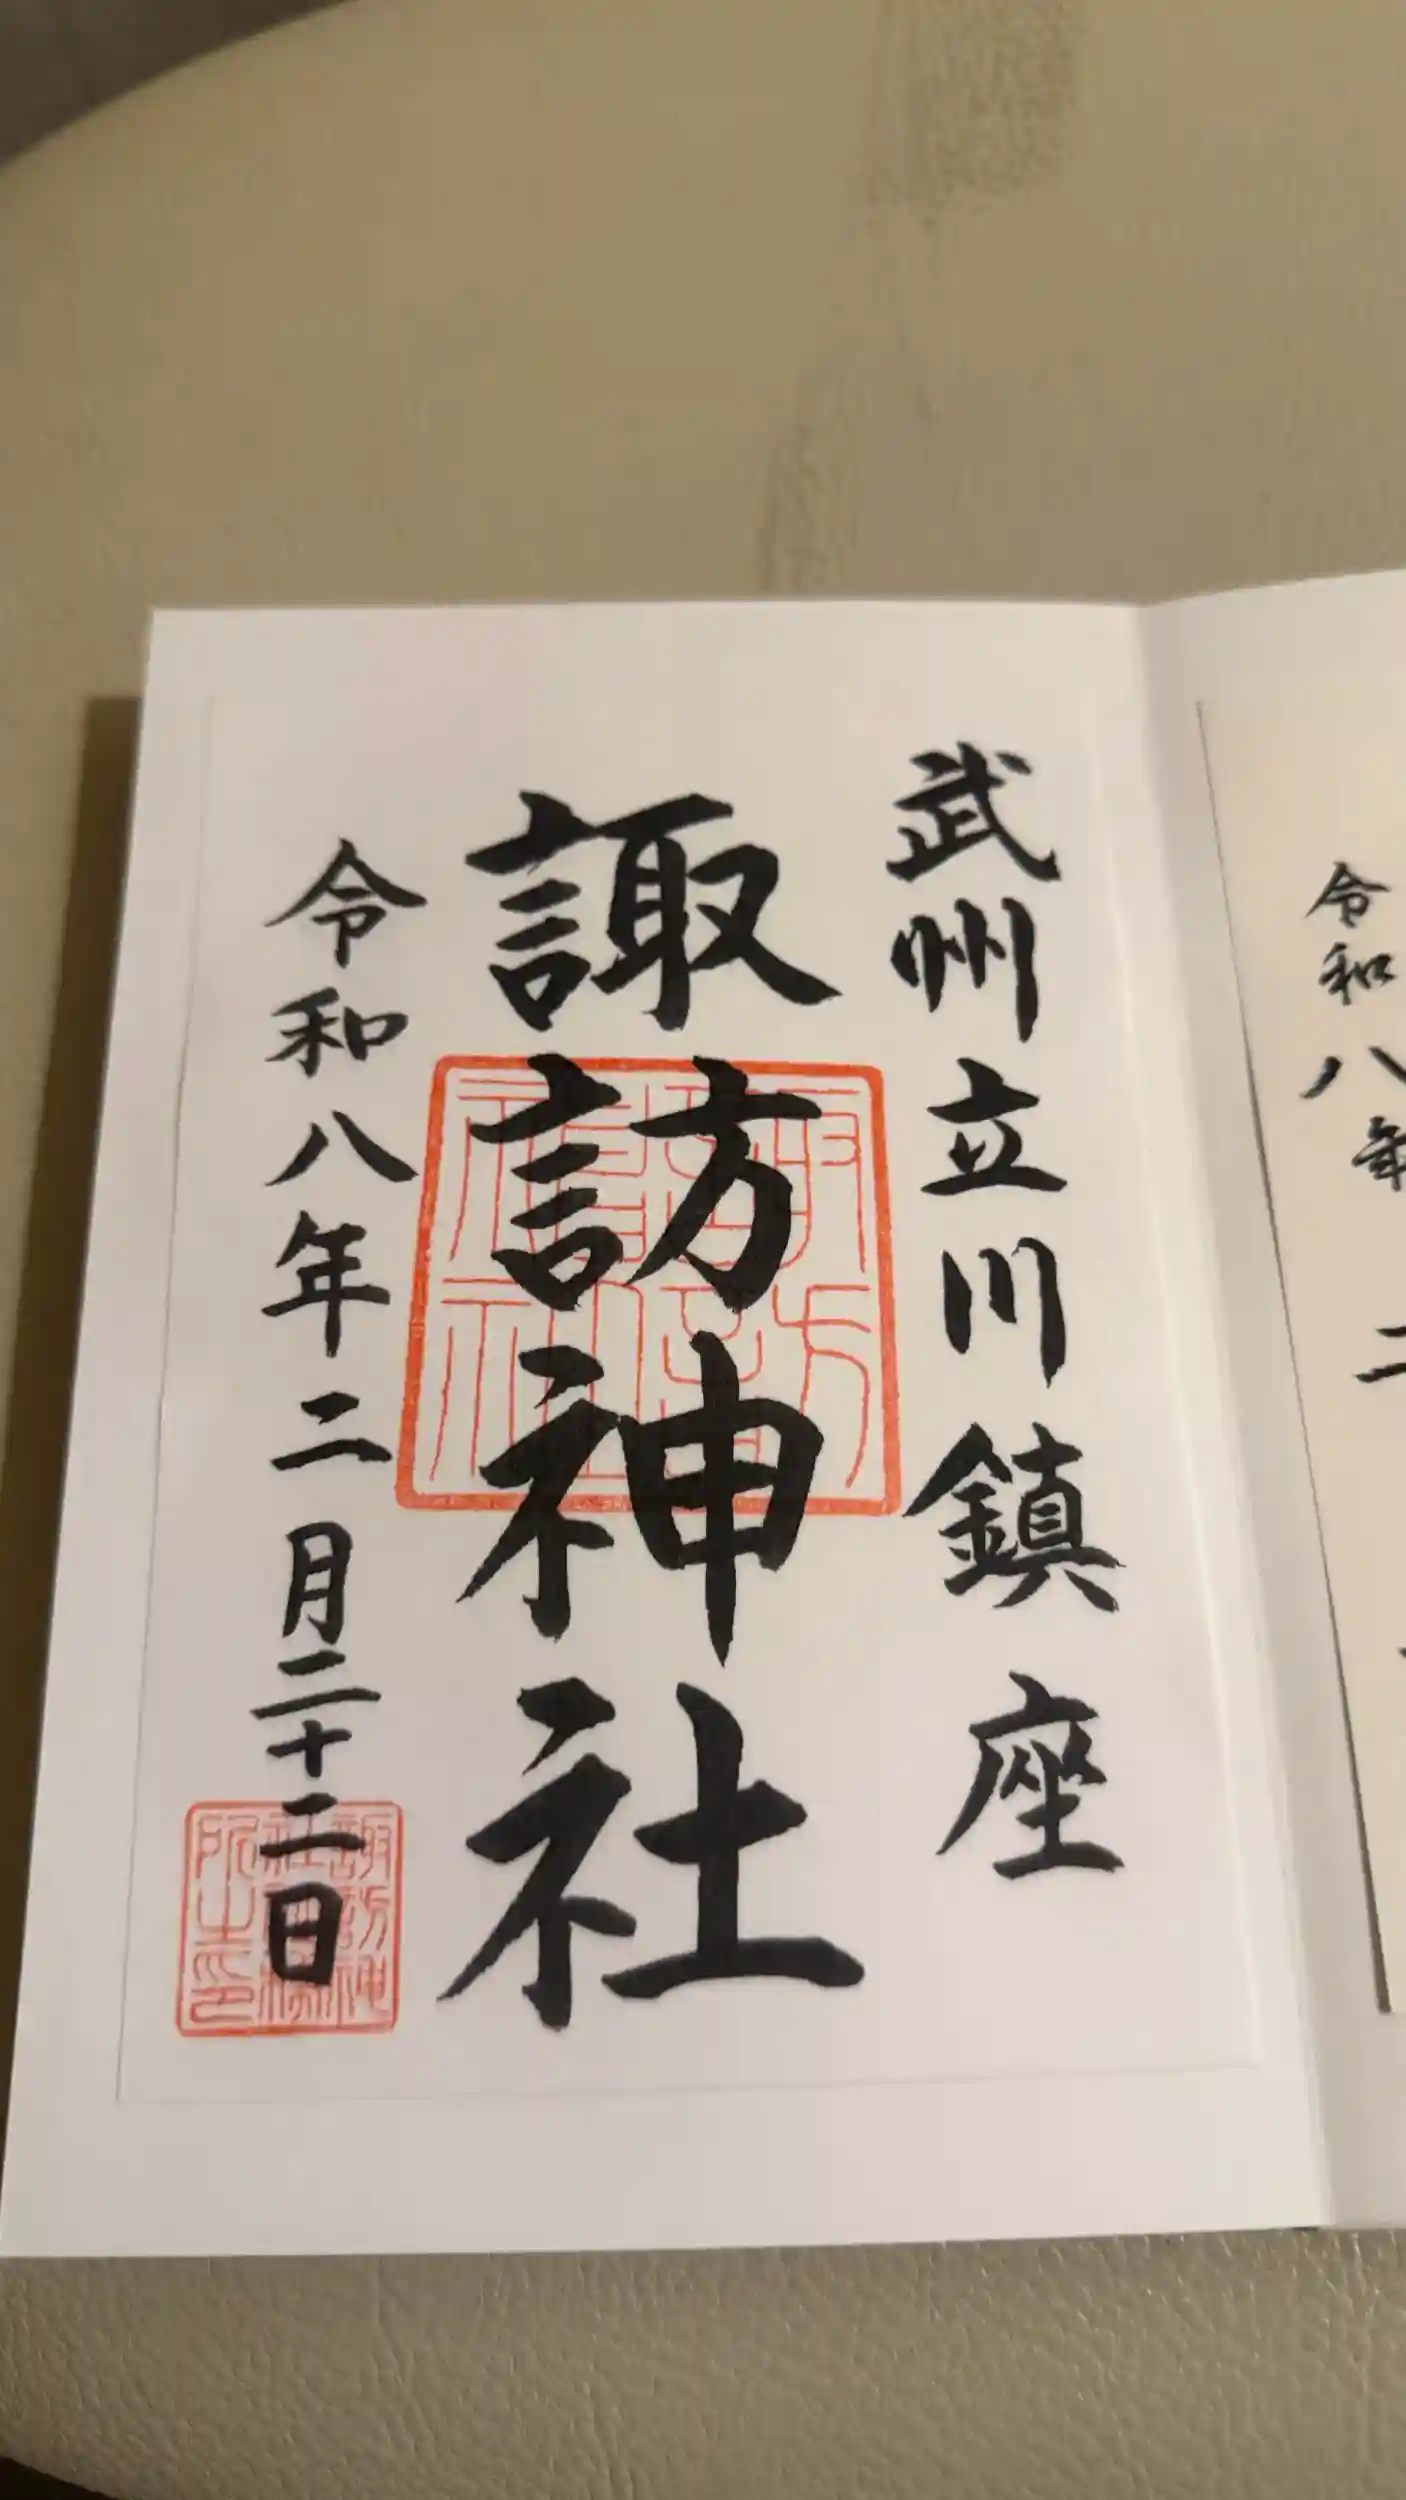 武州立川鎮座
諏訪神社
令和八年二月二十二日
諏訪神社
諏訪神
社務
所之印
令和八年二